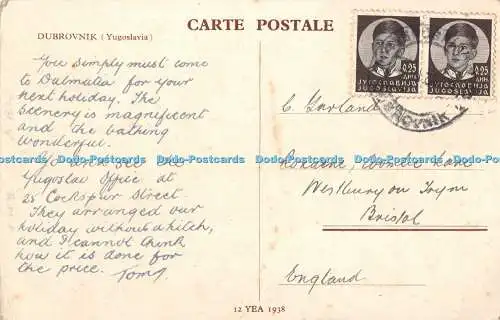 CARTE POSTALE
DUBROVNIK (Yugoslavia)
You simply must come
to Dalmatia for your
next holiday. The
scenery is magnificent
and the bathing
wonderful.
see the
Yugoslav Office at
25 Cockspur Street.
They arranged our
holiday without a hitch,
and I cannot think
how it is done for
the price. Tom
C. Garland
Lane
Westbury on Trym
Bristol
England
0.25
ДИН.
ЈУГОСЛАВИЈА
JUGOSLAVIJA
0.25
ДИН.
ЈУГОСЛАВИЈА
JUGOSLAVIJA
DUBROVNIK
12 YEA 1938
Dodo-Postcards Dodo-Postcards Dodo-Postcards Dodo-Postcards Dodo-Postcards Dodo-Postcards